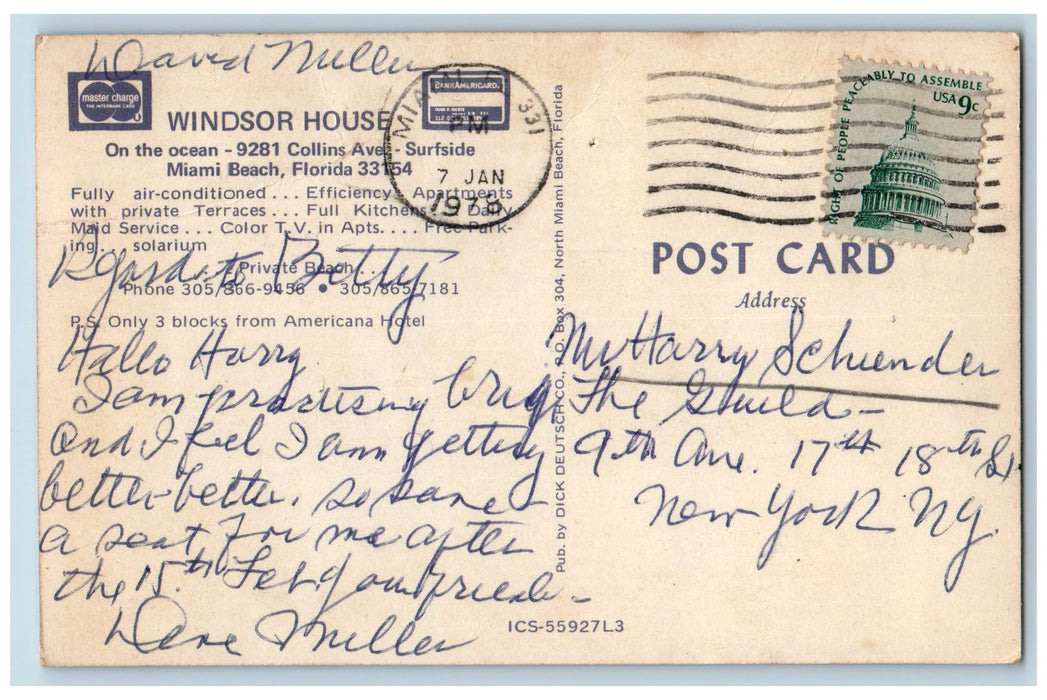 David Miller
master charge
THE INTERBANK CARD
BANKAMERICARD.
WINDSOR HOUSE
On the ocean - 9281 Collins Ave. - Surfside
Miami Beach, Florida 33154
Fully air-conditioned ... Efficiency Apartments
with private Terraces ... Full Kitchens ... Daily
Maid Service ... Color T.V. in Apts. ... Free Park-
ing ... solarium
Private Beach ...
Phone 305/866-9456 • 305/865-7181
P.S. Only 3 blocks from Americana Hotel
Regards to Betty
Hallo Harry
I am practising
and I feel I am getting
better-better. so save
a seat for me after
the 15th Feb. your friend-
Dave Miller
Pub. by DICK DEUTSCH CO., P.O. Box 304, North Miami Beach, Florida
ICS-55927L3
MIAMI, FL 331
PM
7 JAN
1978
RIGHT OF PEOPLE PEACEABLY TO ASSEMBLE
USA 9c
POST CARD
Address
Mr Harry Schiender
The Guild-
9th Ave. 17th 18th St.
New York NY.